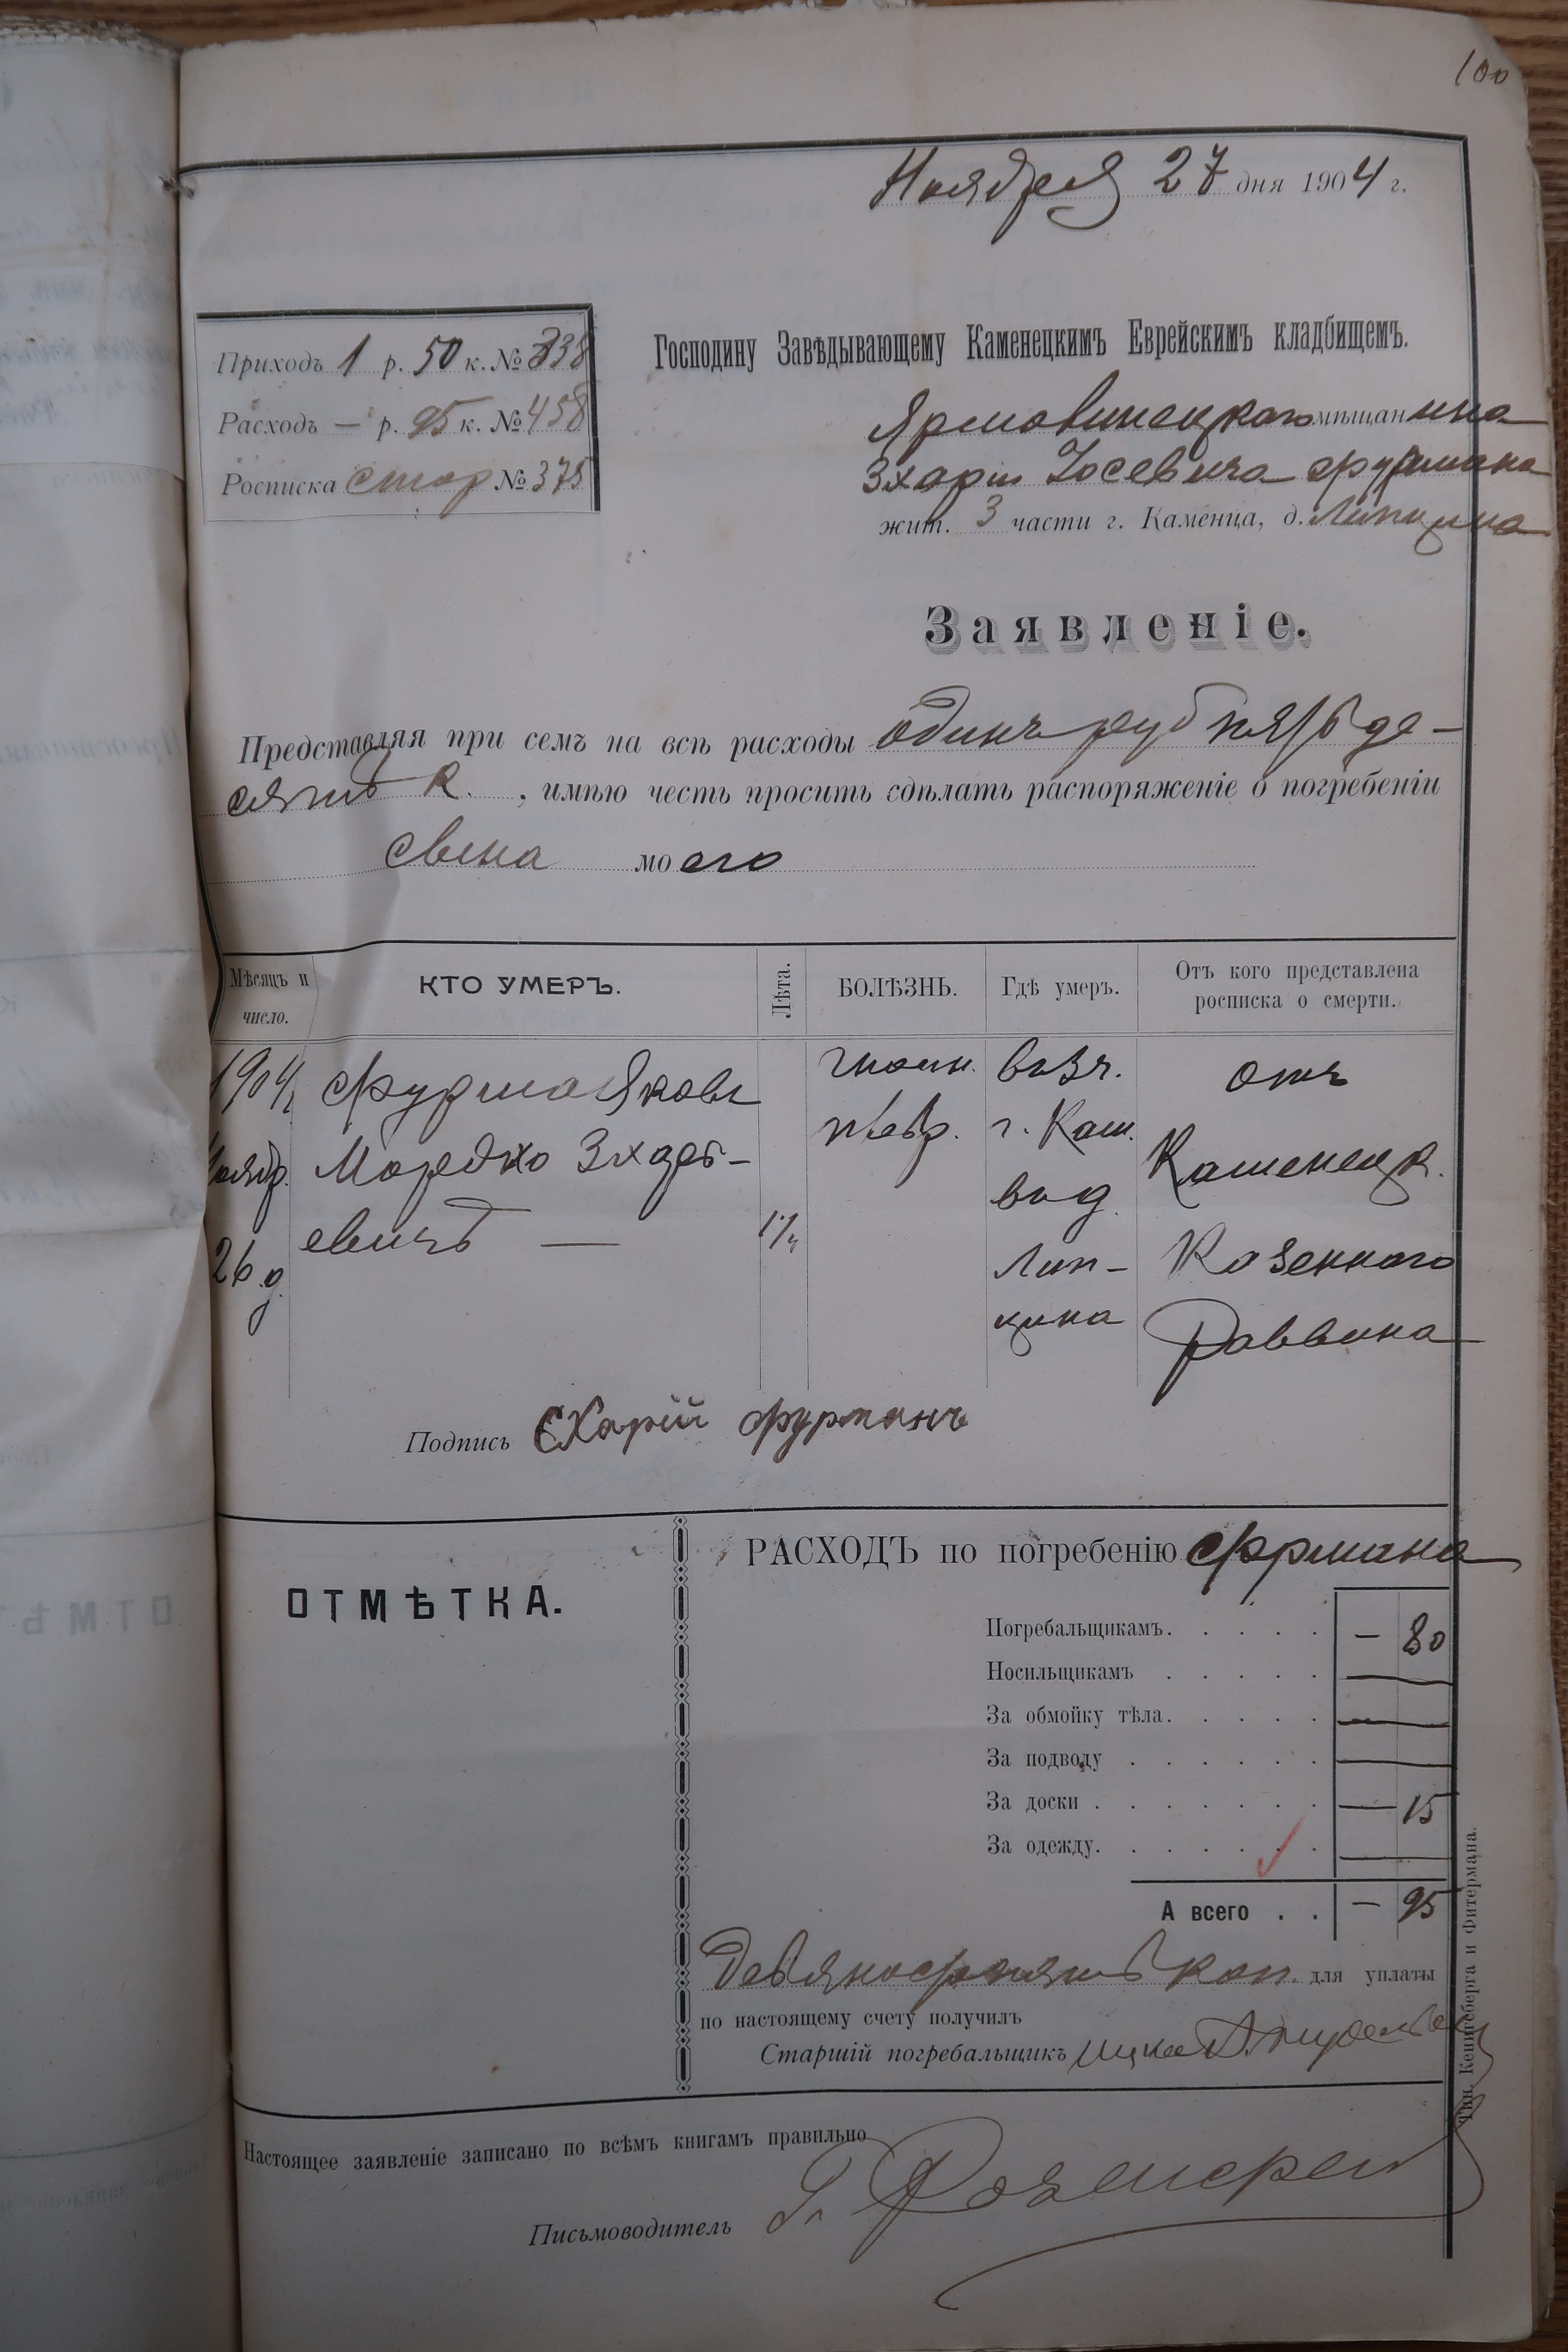 100
Ноября 27 дня 1904 г.
Приходъ 1 р. 50 к. № 338
Расходъ — р. 95 к. № 458
Росписка стор № 375
Господину Завѣдывающему Каменецкимъ Еврейскимъ кладбищемъ.
Ярмолинецкого мѣщанина
Зхарии Іосевича Фурмана
жит. 3 части г. Каменца, д. Липцина
Заявленіе.
Представляя при семъ на всѣ расходы одинъ руб пятьде-
сятъ к. , имѣю честь просить сдѣлать распоряженіе о погребеніи
сына моего
Мѣсяцъ и число. КТО УМЕРЪ. Лѣта. БОЛѢЗНЬ. Гдѣ умеръ. Отъ кого представлена росписка о смерти.
1904 Фурма Яковъ въ 3 ч. отъ
Ноябр. Мордко Зхарь- г. Кам. Каменецк.
26 д. евичъ — въ д. Казенного
Лип- Раввина
цина
Подпись СХарій Фурманъ
ОТМѢТКА.
РАСХОДЪ по погребенію Фрмана
Погребальщикамъ. . . . . — 80
Носильщикамъ . . . . . —
За обмойку тѣла. . . . . —
За подводу . . . . . . —
За доски . . . . . . . — 15
За одежду. . . . . . . —
А всего . . — 95
Девяносто пять коп. для уплаты
по настоящему счету получилъ
Старшій погребальщикъ Ицко
Тип. Кенигсберга и Фитермана.
Настоящее заявленіе записано по всѣмъ книгамъ правильно
Письмоводитель